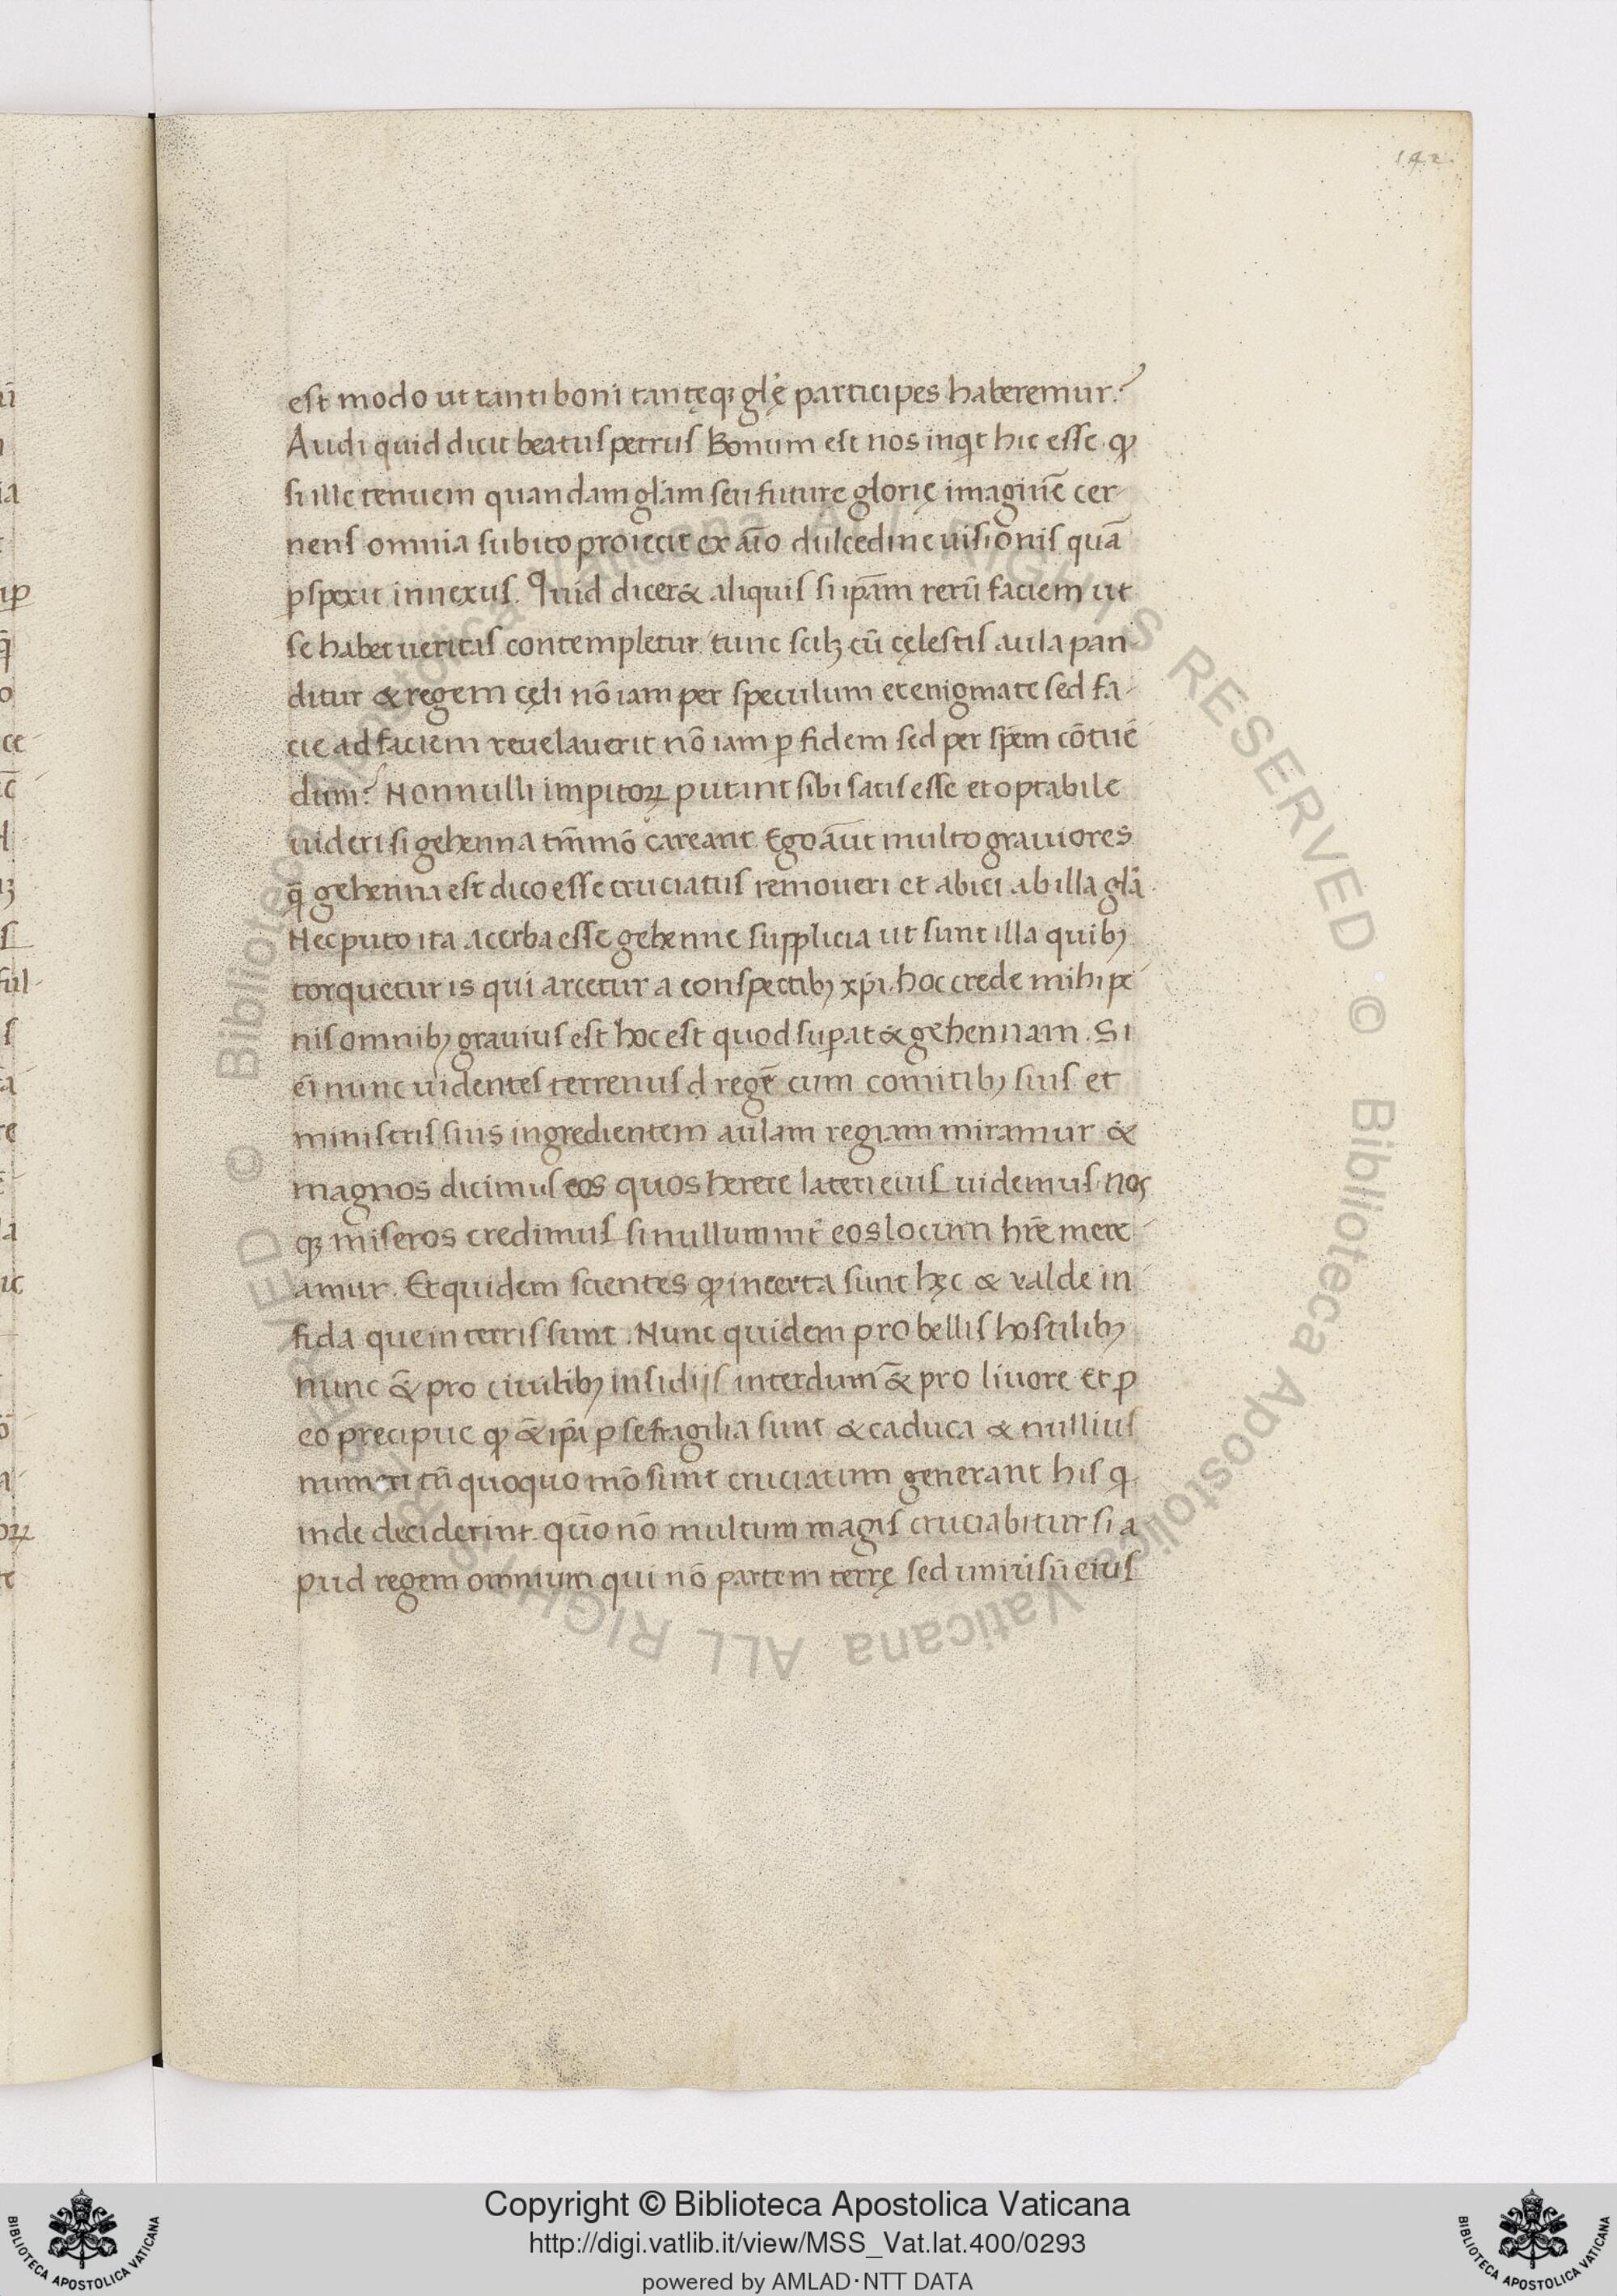 142.
est modo ut tanti boni tantęq; gl̄ę participes haberemur?
Audi quid dicit beatus petrus Bonum est nos inqt hic esse. qp
si ille tenuem quandam gl̄am seu future glorię imaginē cer-
nens omnia subito proiecit ex aīo dulcedine uisionis quā
pspexit innexus. Quid dicer& aliquis si ipām rerū faciem ut
se habet ueritas contempletur tunc scilz cū cęlestis aula pan
ditur & regem cęli nō iam per speculum et enigmate sed fa-
cie ad faciem reuelauerit nō iam p fidem sed per spēm cōtuē
dum? Nonnulli impitoꝝ putant sibi satis esse et optabile
uideri si gehenna tm̄mō careant. Ego aūt multo grauiores
q̄ gehenna est dico esse cruciatus remoueri et abici ab illa gl̄a.
Nec puto ita acerba esse gehenne supplicia ut sunt illa quib;
torquetur is qui arcetur a conspectib; xp̄i. hoc crede mihi pe
nis omnib; grauius est hoc est quod supat & gehennam. Si
ei nunc uidentes terrenus d regē cum comitib; suis et
ministris suis ingredientem aulam regiam miramur &
magnos dicimus eos quos herere lateri eius uidemus. nos
q; miseros credimus si nullum int̄ eos locum hr̄e mere
amur. Et quidem scientes qp incerta sunt hęc & valde in
fida que in terris sunt. Nunc quidem pro bellis hostilib;
nunc & pro ciuilib; insidijs interdum & pro liuore et p
eo precipue qp & ip̄a p se fragilia sunt & caduca & nullius
numeri tn̄ quoquo mō sunt cruciatum generant his q
inde deciderint. quō nō multum magis cruciabitur si a
pud regem omnium qui nō partem terrę sed uniuersū eius
© Biblioteca Apostolica Vaticana ALL RIGHTS RESERVED © Biblioteca Apostolica Vaticana ALL RIGHTS RESERVED
Copyright © Biblioteca Apostolica Vaticana
http://digi.vatlib.it/view/MSS_Vat.lat.400/0293
powered by AMLAD·NTT DATA
BIBLIOTECA APOSTOLICA VATICANA
BIBLIOTECA APOSTOLICA VATICANA